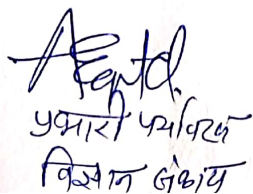 प्रभारी पर्यवेक्षक
विज्ञान संकाय